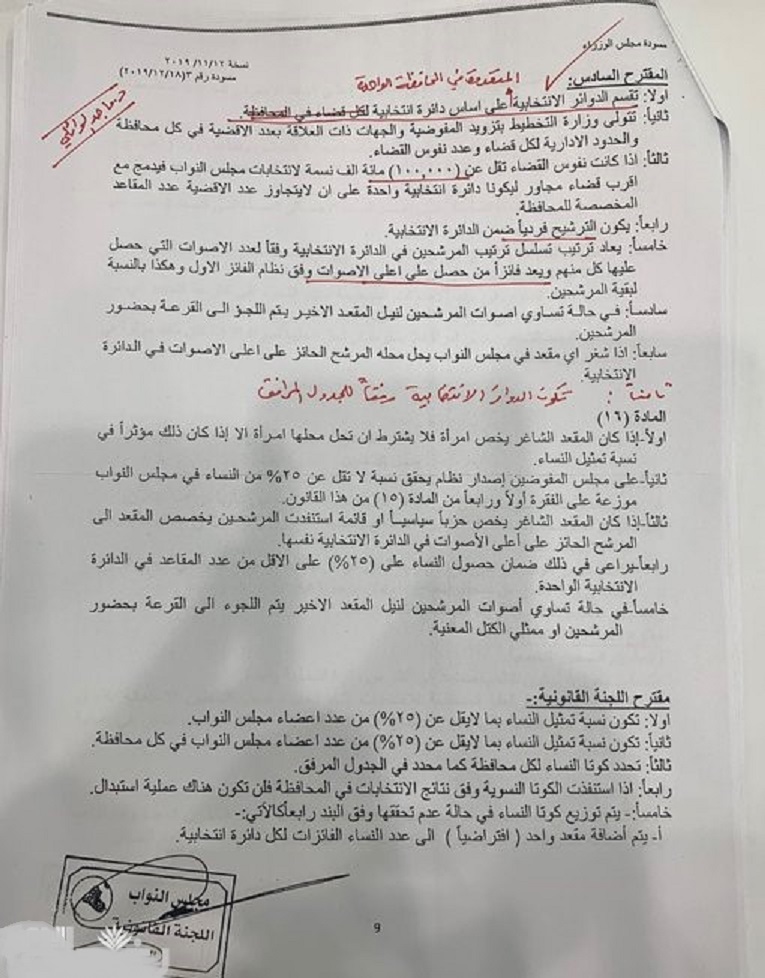 مسودة مجلس الوزراء
نسخة ٢٠١٩/١١/١٢
مسودة رقم ٣(٢٠١٩/١٢/١٨)
المقترح السادس:
المتعددة في المحافظة الواحدة
اولا: تقسم الدوائر الانتخابية على اساس دائرة انتخابية لكل قضاء في المحافظة.
ثانياً: تتولى وزارة التخطيط بتزويد المفوضية والجهات ذات العلاقة بعدد الاقضية في كل محافظة
والحدود الادارية لكل قضاء وعدد نفوس القضاء.
ثالثاً: اذا كانت نفوس القضاء تقل عن (١٠٠,٠٠٠) مائة الف نسمة لانتخابات مجلس النواب فيدمج مع
اقرب قضاء مجاور ليكونا دائرة انتخابية واحدة على ان لايتجاوز عدد الاقضية عدد المقاعد
المخصصة للمحافظة.
رابعاً: يكون الترشيح فردياً ضمن الدائرة الانتخابية.
خامساً: يعاد ترتيب تسلسل ترتيب المرشحين في الدائرة الانتخابية وفقاً لعدد الاصوات التي حصل
عليها كل منهم ويعد فائزاً من حصل على اعلى الاصوات وفق نظام الفائز الاول وهكذا بالنسبة
لبقية المرشحين.
سادساً: في حالة تساوي اصوات المرشحين لنيل المقعد الاخير يتم اللجؤ الى القرعة بحضور
المرشحين.
سابعاً: اذا شغر اي مقعد في مجلس النواب يحل محله المرشح الحائز على اعلى الاصوات في الدائرة
الانتخابية.
ثامناً : تكون الدوائر الانتخابية وفقاً للجدول المرافق
المادة (١٦)
اولاً-إذا كان المقعد الشاغر يخص امرأة فلا يشترط ان تحل محلها امرأة الا إذا كان ذلك مؤثراً في
نسبة تمثيل النساء.
ثانياً-على مجلس المفوضين إصدار نظام يحقق نسبة لا تقل عن ٢٥% من النساء في مجلس النواب
موزعة على الفقرة أولاً ورابعاً من المادة (١٥) من هذا القانون.
ثالثاً-إذا كان المقعد الشاغر يخص حزباً سياسياً او قائمة استنفدت المرشحين يخصص المقعد الى
المرشح الحائز على أعلى الأصوات في الدائرة الانتخابية نفسها.
رابعاً-يراعى في ذلك ضمان حصول النساء على (٢٥%) على الاقل من عدد المقاعد في الدائرة
الانتخابية الواحدة.
خامساً-في حالة تساوي أصوات المرشحين لنيل المقعد الاخير يتم اللجوء الى القرعة بحضور
المرشحين او ممثلي الكتل المعنية.
مقترح اللجنة القانونية:-
اولا: تكون نسبة تمثيل النساء بما لايقل عن (٢٥%) من عدد اعضاء مجلس النواب.
ثانياً: تكون نسبة تمثيل النساء بما لايقل عن (٢٥%) من عدد اعضاء مجلس النواب في كل محافظة.
ثالثاً: تحدد كوتا النساء لكل محافظة كما محدد في الجدول المرفق.
رابعاً: اذا استنفذت الكوتا النسوية وفق نتائج الانتخابات في المحافظة فلن تكون هناك عملية استبدال.
خامساً:- يتم توزيع كوتا النساء في حالة عدم تحققها وفق البند رابعاًكالآتي:-
أ- يتم أضافة مقعد واحد ( افتراضياً ) الى عدد النساء الفائزات لكل دائرة انتخابية.
مجلس النواب
اللجنة القانونية
9